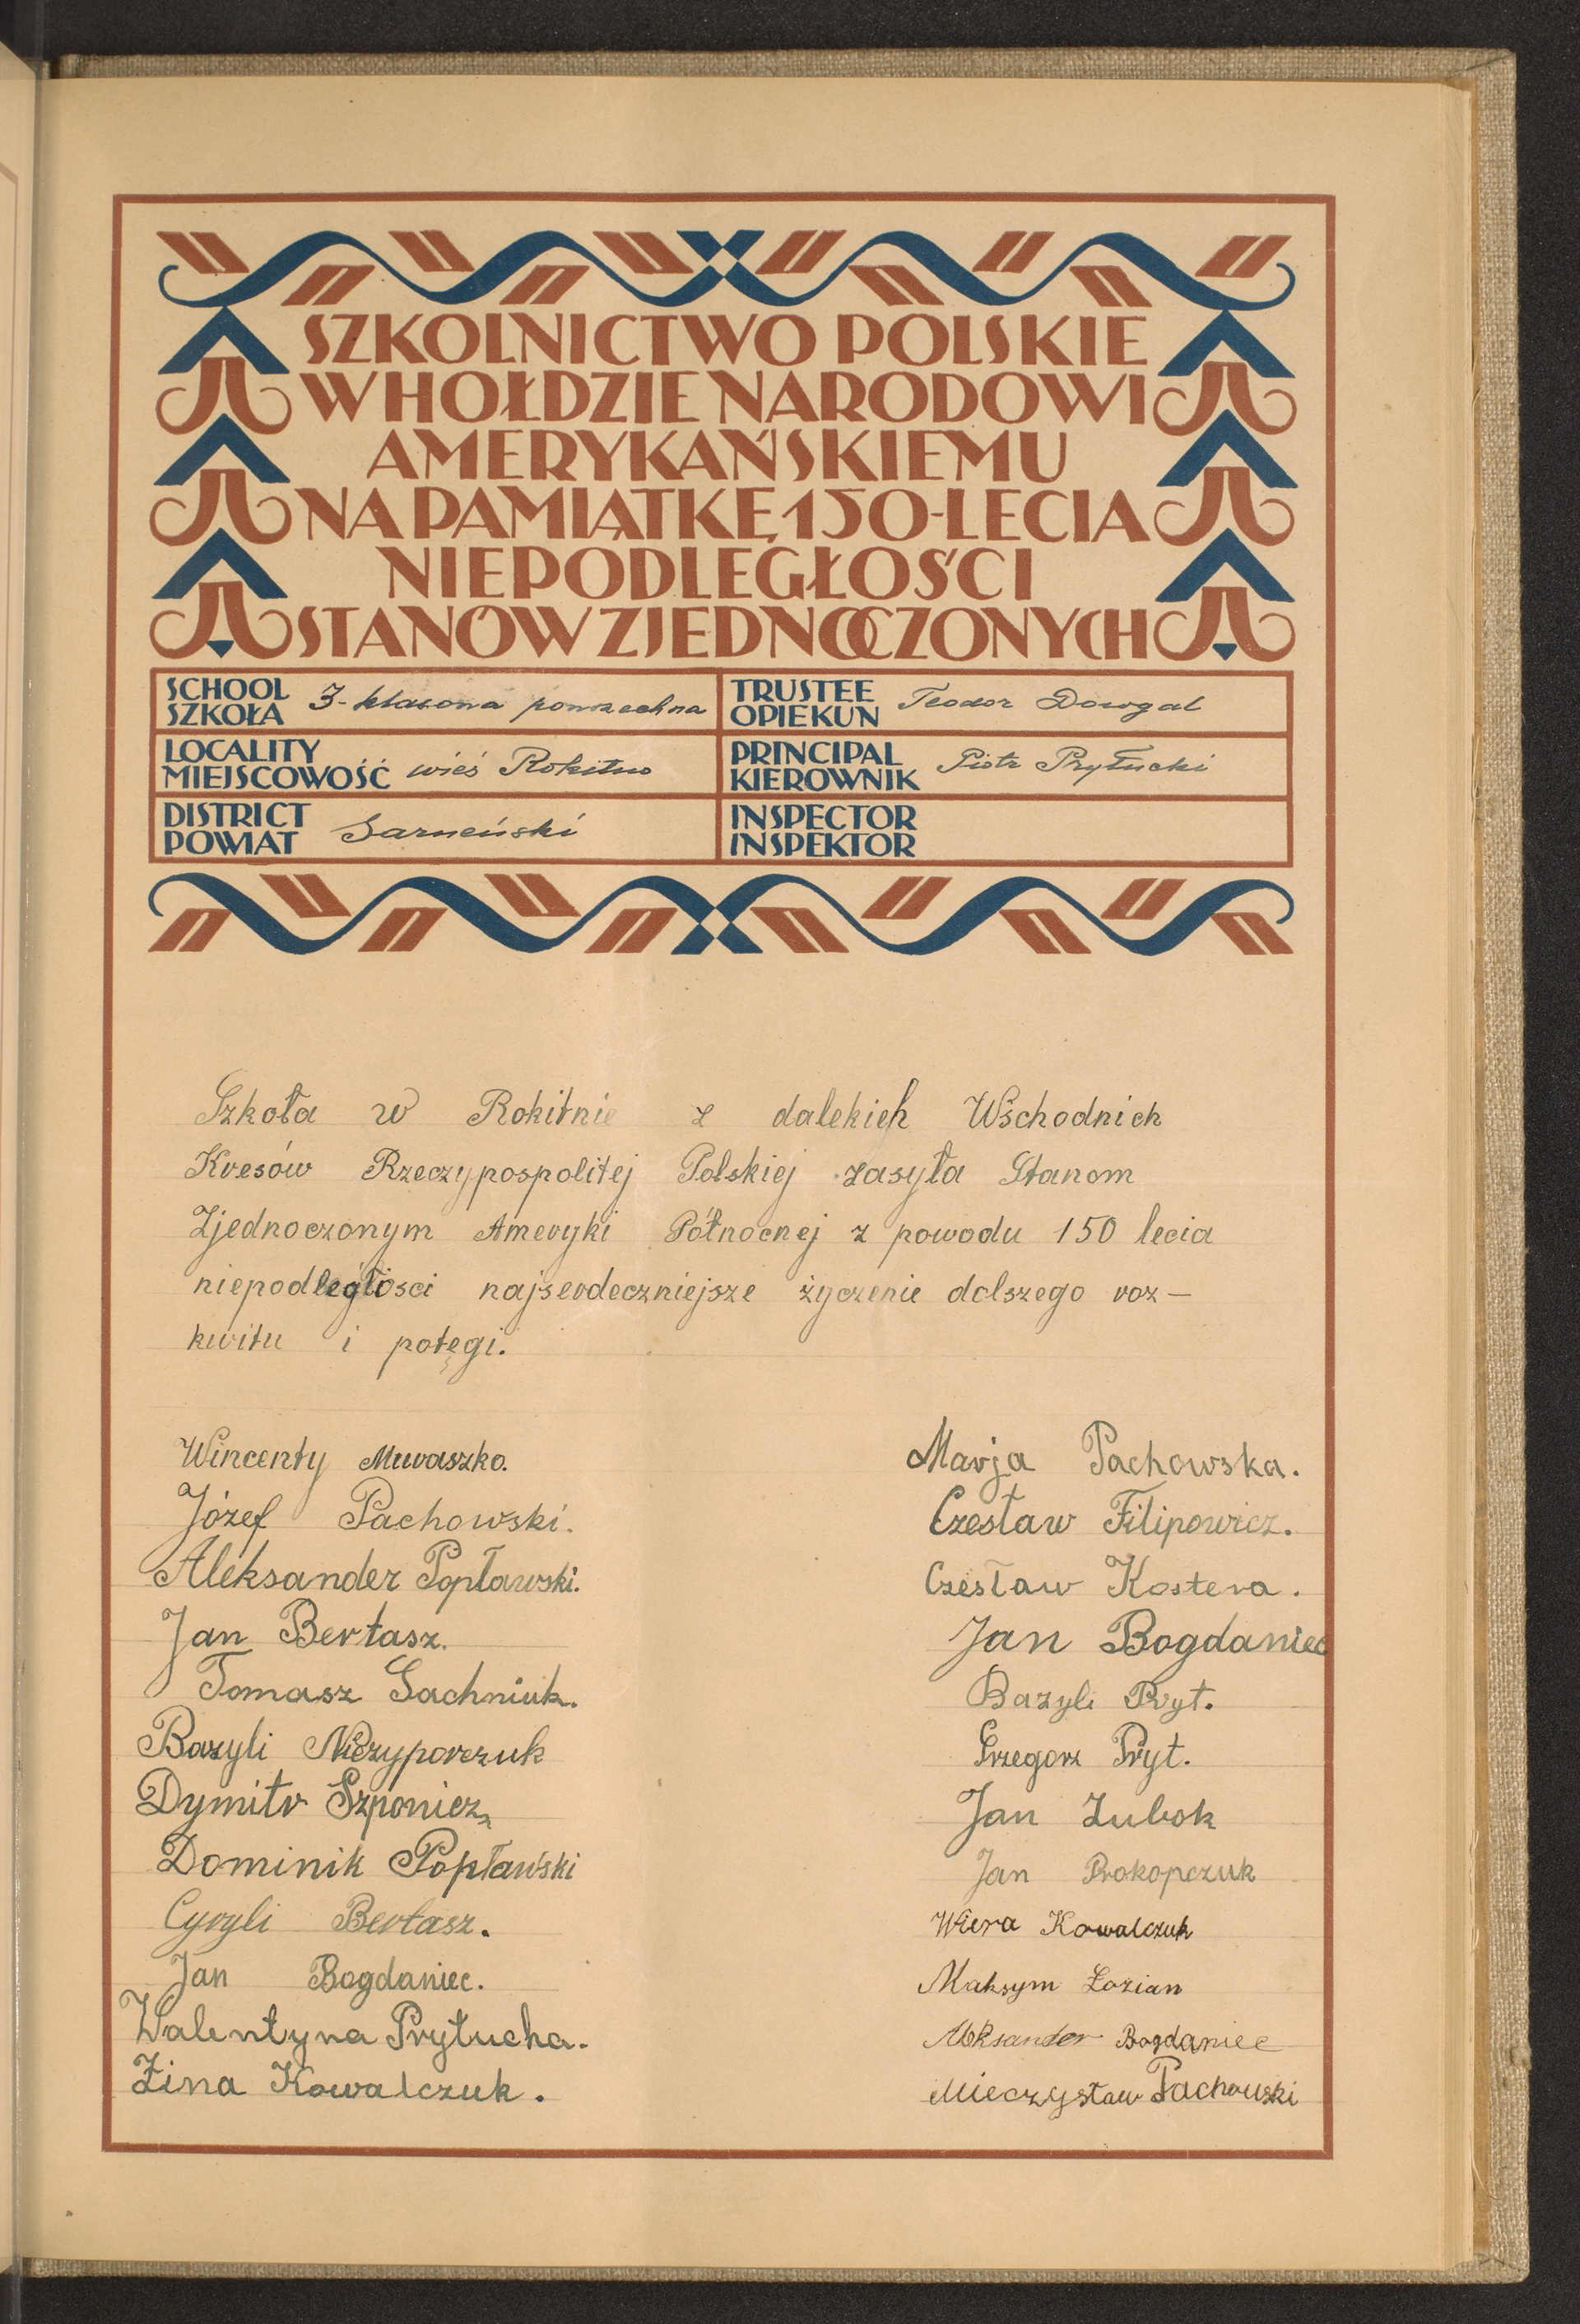 SZKOLNICTWO POLSKIE
W HOŁDZIE NARODOWI
AMERYKAŃSKIEMU
NA PAMIĄTKĘ 150-LECIA
NIEPODLEGŁOŚCI
STANÓW ZJEDNOCZONYCH
SCHOOL
SZKOŁA 3-klasowa powszechna
TRUSTEE
OPIEKUN Teodor Dowgal
LOCALITY
MIEJSCOWOŚĆ wieś Rokitno
PRINCIPAL
KIEROWNIK Piotr Prytucki
DISTRICT
POWIAT Sarneński
INSPECTOR
INSPEKTOR
Szkoła w Rokitnie z dalekich Wschodnich
Kresów Rzeczypospolitej Polskiej zasyła Stanom
Zjednoczonym Ameryki Północnej z powodu 150 lecia
niepodległosci najserdeczniejsze życzenie dalszego roz—
kwitu i potęgi.
Wincenty Muraszko.
Józef Pachowski.
Aleksander Popławski.
Jan Bertasz.
Tomasz Sachniuk.
Bazyli Niczyporczuk
Dymitr
Dominik Popławski
Cyryli Bertasz.
Jan Bogdaniec.
Walentyna Prytucha.
Zina Kowalczuk.
Marja Pachowska.
Czesław Filipowicz.
Czesław Kostera.
Jan Bogdaniec
Bazyli Pryt.
Grzegorz Pryt.
Jan Zubok
Jan Prokopczuk
Wiera Kowalczuk
Maksym Łozian
Aleksander Bogdaniec
Mieczysław Pachowski